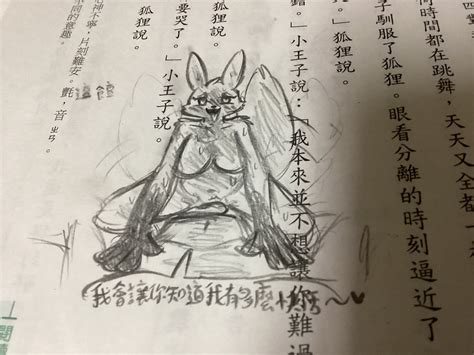 何時間都在跳舞，天天又全都
子馴服了狐狸。眼看分離的時刻逼近了
」狐狸說。
錯。」小王子說：「我本來並不想讓你難過
」狐狸說。
要哭了。」小王子說。
神不寧，片刻難安。
不同的意趣。
我會讓你知道我有多麼快活～♥
閱讀